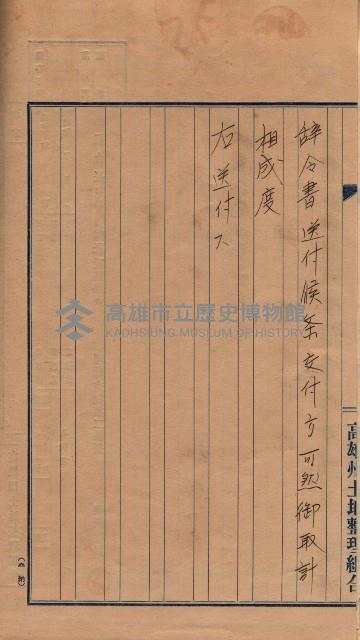 辞令書送付候条交付方可然御取計
相成度
右送付ス
高雄州土地整理組合
高雄市立歷史博物館
KAOHSIUNG MUSEUM OF HISTORY